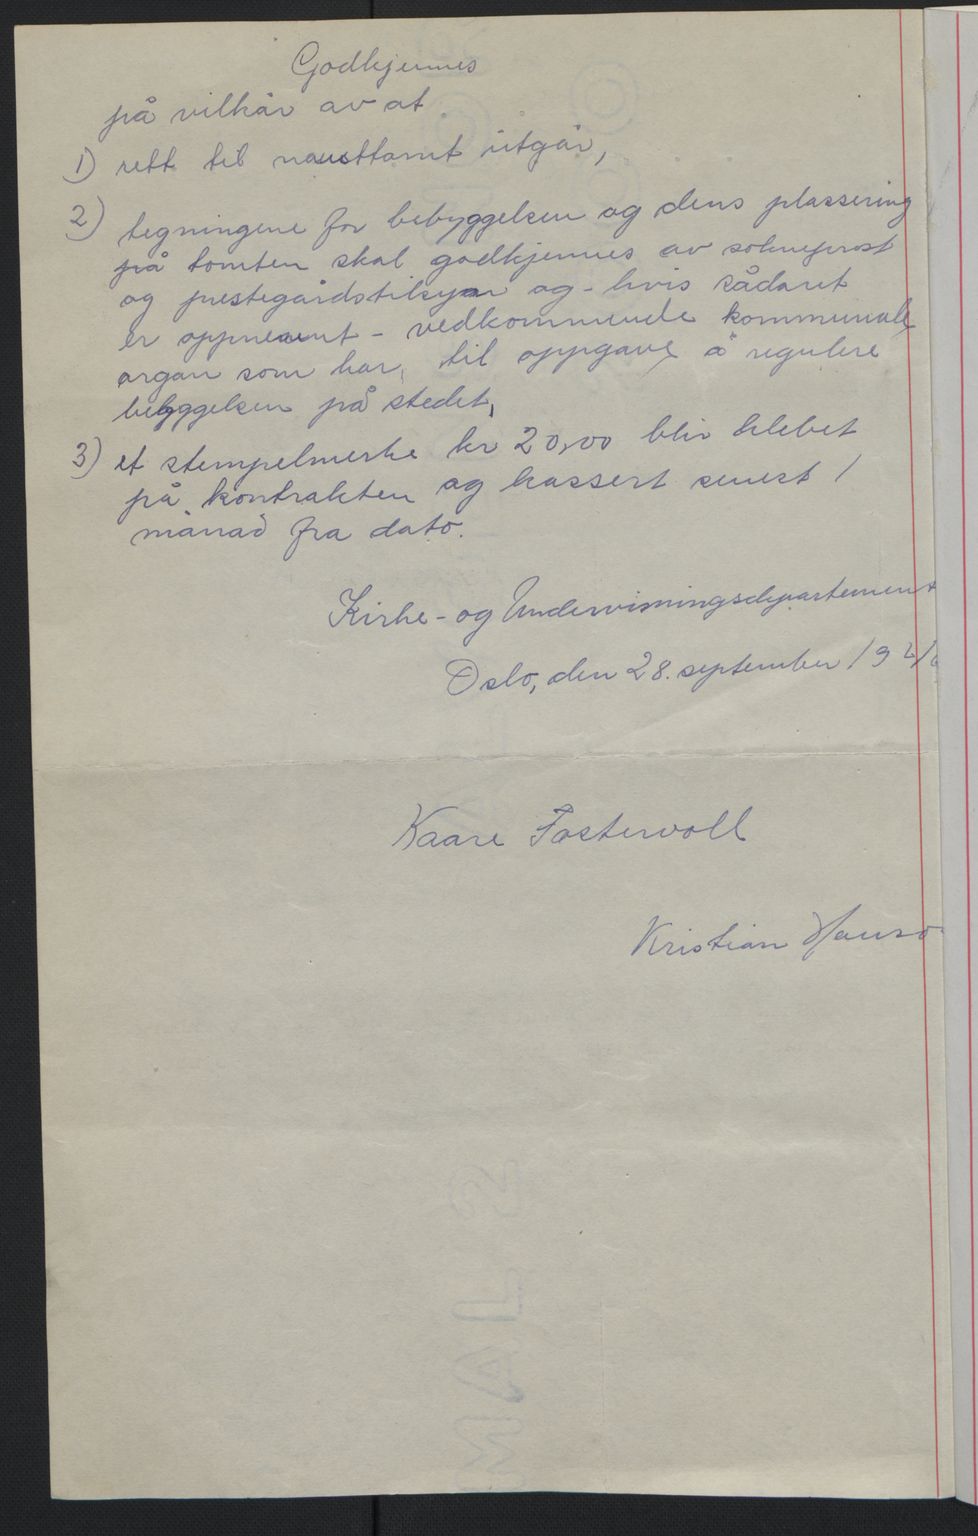 Godkjennes
på vilkår av at
1) rett til nausttomt utgår,
2) tegningene for bebyggelsen og dens plassering
på tomten skal godkjennes av sokneprest
og prestegårdstilsyn og - hvis sådant
er oppnevnt - vedkommende kommunale
organ som har til oppgave å regulere
bebyggelsen på stedet,
3) et stempelmerke kr 20,00 blir klebet
på kontrakten og kassert senest 1
månad fra dato.
Kirke- og Undervisningsdepartement
Oslo, den 28. september 194
Kaare Fostervoll
Kristian Hanso
MAL S